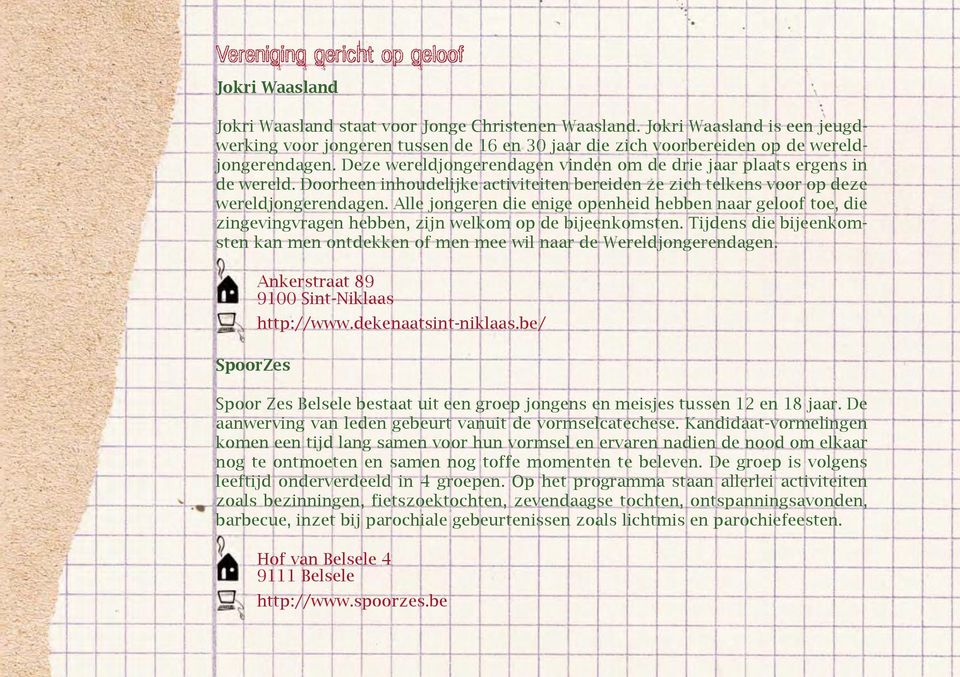 Vereniging gericht op geloof
Jokri Waasland
Jokri Waasland staat voor Jonge Christenen Waasland. Jokri Waasland is een jeugd-
werking voor jongeren tussen de 16 en 30 jaar die zich voorbereiden op de wereld-
jongerendagen. Deze wereldjongerendagen vinden om de drie jaar plaats ergens in
de wereld. Doorheen inhoudelijke activiteiten bereiden ze zich telkens voor op deze
wereldjongerendagen. Alle jongeren die enige openheid hebben naar geloof toe, die
zingevingvragen hebben, zijn welkom op de bijeenkomsten. Tijdens die bijeenkom-
sten kan men ontdekken of men mee wil naar de Wereldjongerendagen.
Ankerstraat 89
9100 Sint-Niklaas
http://www.dekenaatsint-niklaas.be/
SpoorZes
Spoor Zes Belsele bestaat uit een groep jongens en meisjes tussen 12 en 18 jaar. De
aanwerving van leden gebeurt vanuit de vormselcatechese. Kandidaat-vormelingen
komen een tijd lang samen voor hun vormsel en ervaren nadien de nood om elkaar
nog te ontmoeten en samen nog toffe momenten te beleven. De groep is volgens
leeftijd onderverdeeld in 4 groepen. Op het programma staan allerlei activiteiten
zoals bezinningen, fietszoektochten, zevendaagse tochten, ontspanningsavonden,
barbecue, inzet bij parochiale gebeurtenissen zoals lichtmis en parochiefeesten.
Hof van Belsele 4
9111 Belsele
http://www.spoorzes.be